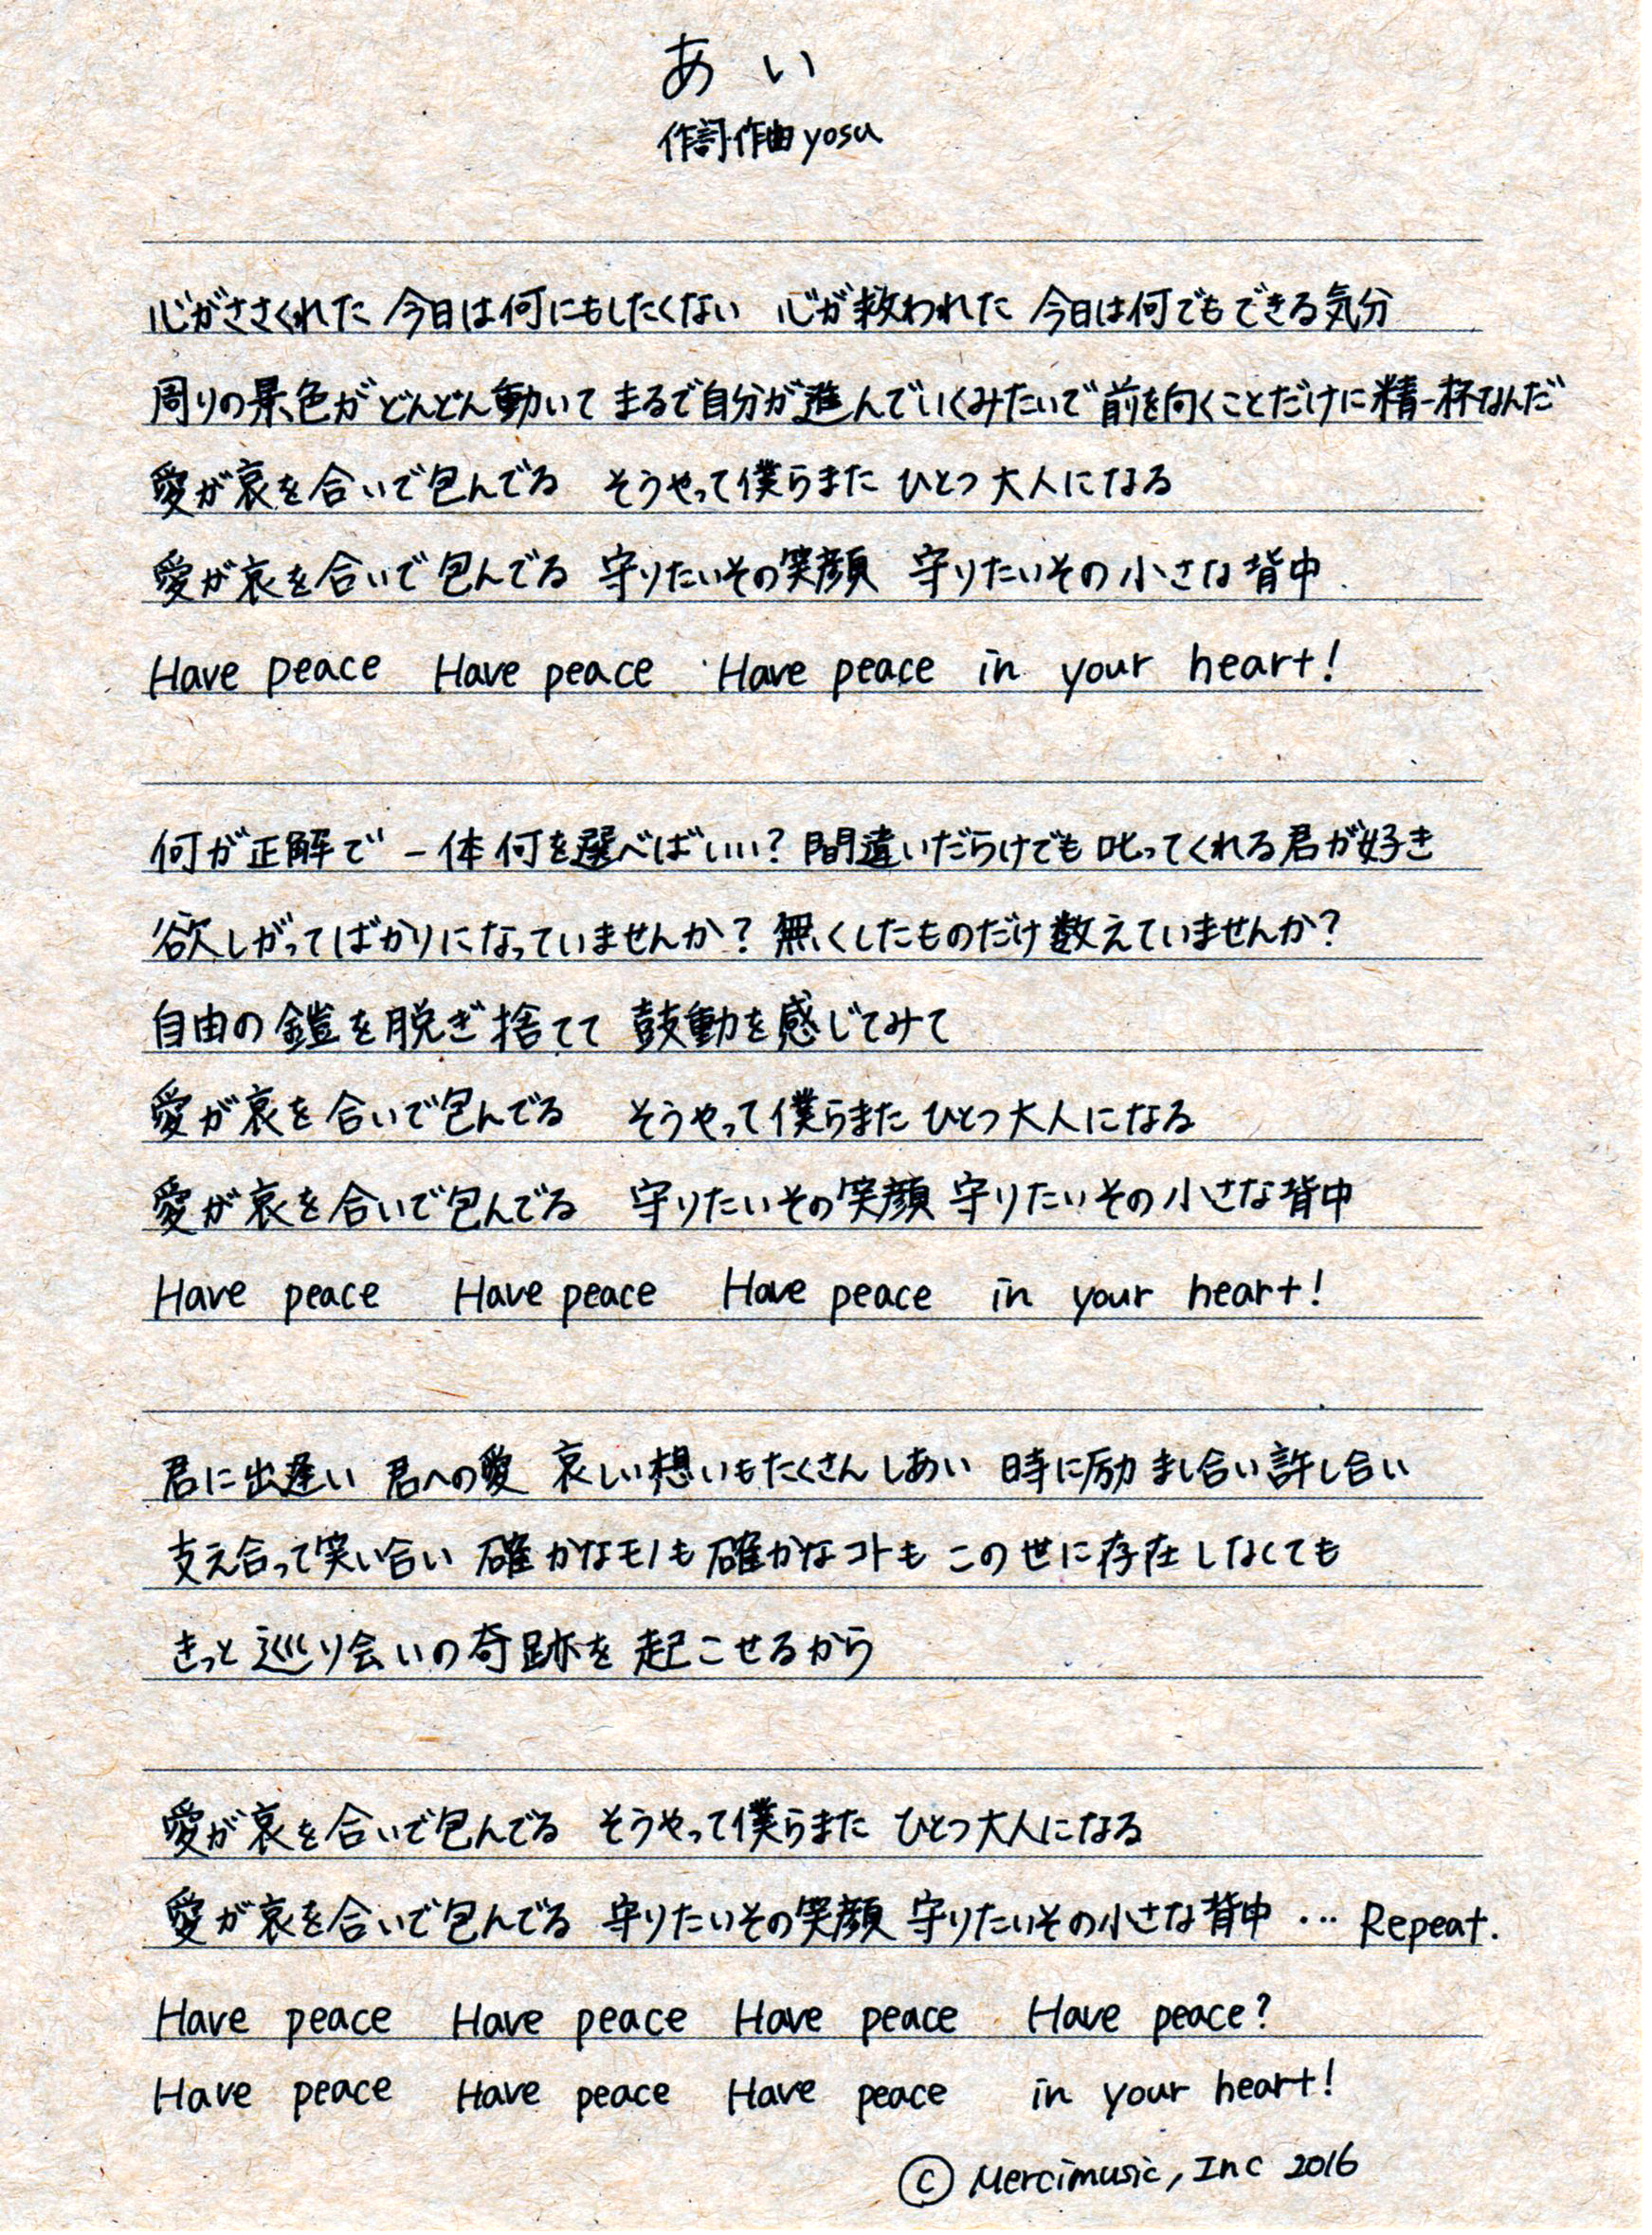 あい
作詞作曲yosu
心がささくれた 今日は何にもしたくない 心が救われた 今日は何でもできる気分
周りの景色がどんどん動いて まるで自分が進んでいくみたいで 前を向くことだけに精一杯なんだ
愛が哀を合いで包んでる そうやって僕らまた ひとつ大人になる
愛が哀を合いで包んでる 守りたいその笑顔 守りたいその小さな背中
Have peace Have peace Have peace in your heart!
何が正解で 一体何を選べばいい? 間違いだらけでも 叱ってくれる君が好き
欲しがってばかりになっていませんか? 無くしたものだけ数えていませんか?
自由の鎧を脱ぎ捨てて 鼓動を感じてみて
愛が哀を合いで包んでる そうやって僕らまた ひとつ大人になる
愛が哀を合いで包んでる 守りたいその笑顔 守りたいその小さな背中
Have peace Have peace Have peace in your heart!
君に出逢い 君への愛 哀しい想いもたくさんしあい 時に励まし合い許し合い
支え合って笑い合い 確かなモノも確かなコトも この世に存在しなくても
きっと巡り会いの奇跡を 起こせるから
愛が哀を合いで包んでる そうやって僕らまた ひとつ大人になる
愛が哀を合いで包んでる 守りたいその笑顔 守りたいその小さな背中 … Repeat.
Have peace Have peace Have peace Have peace?
Have peace Have peace Have peace in your heart!
© Mercimusic, Inc 2016